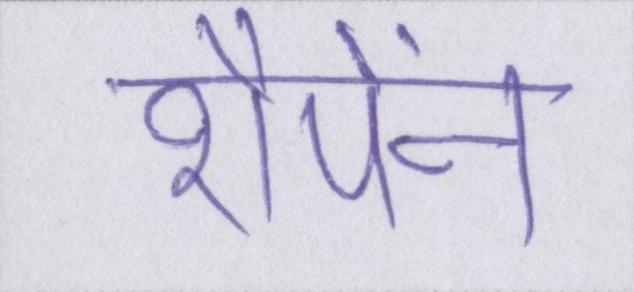 शैपेंन